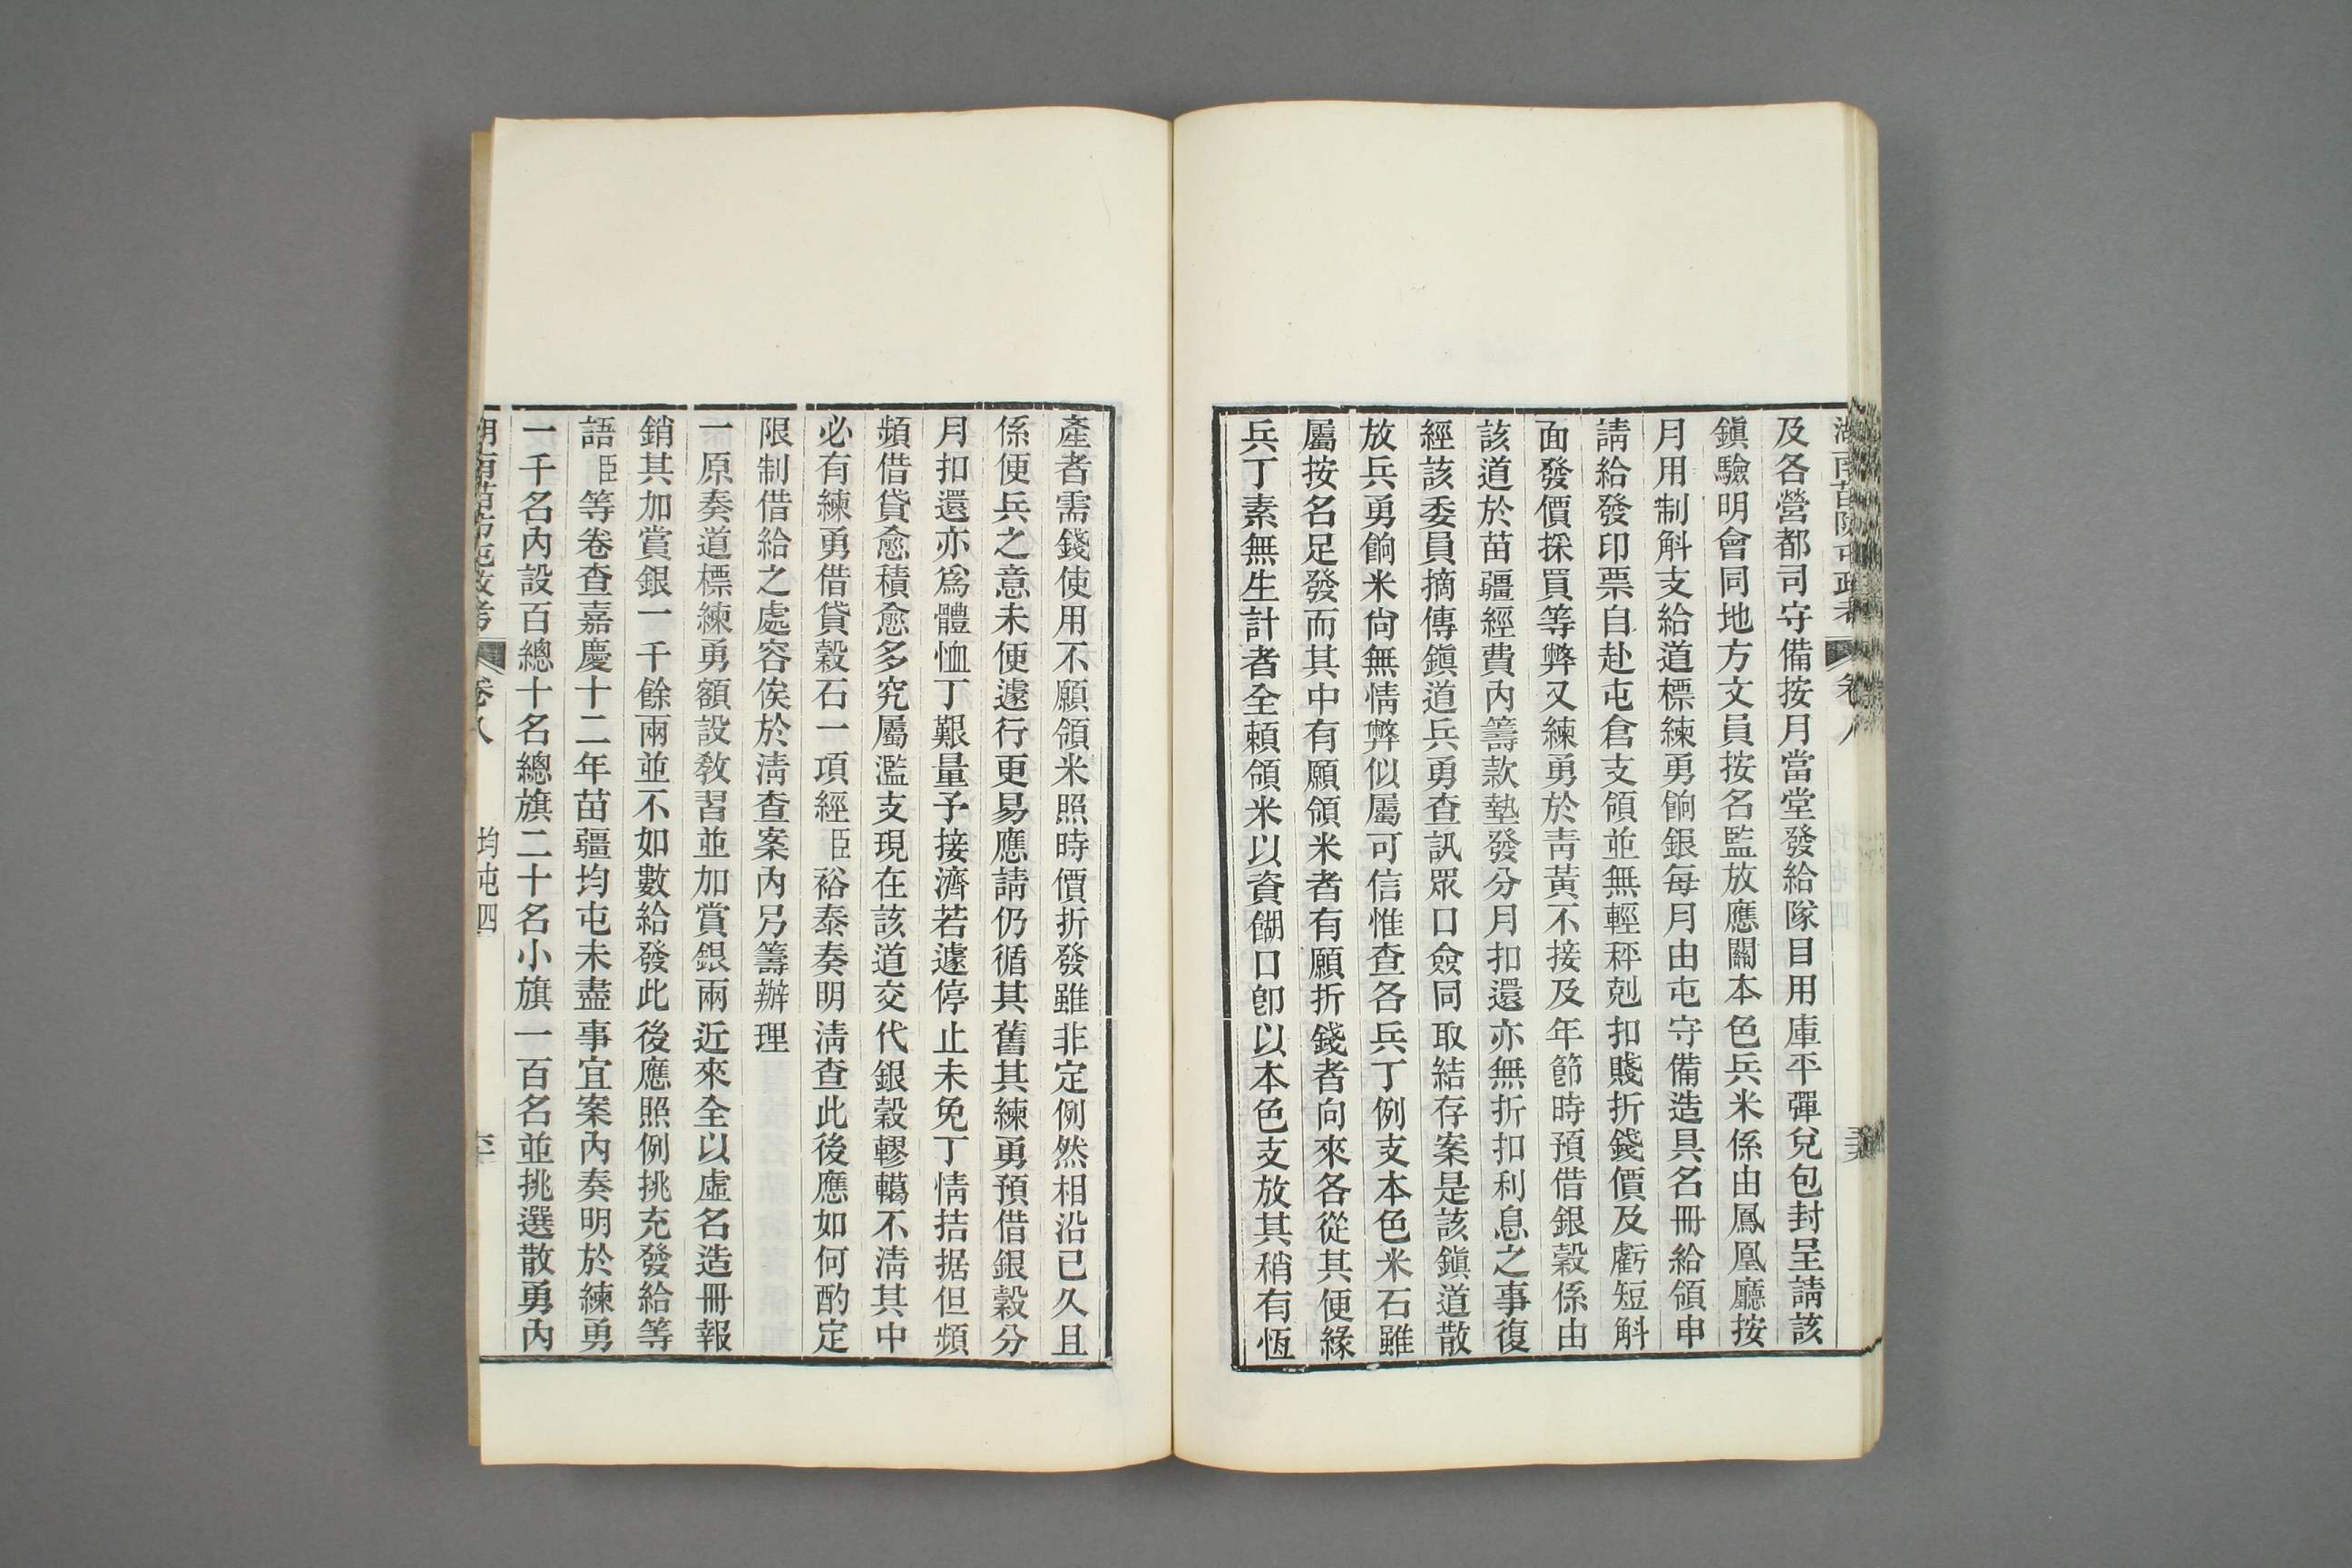 湖南苗防屯政考 卷八
及各營都司守備按月當堂發給隊目用庫平彈兌包封呈請該
鎭驗明會同地方文員按名監放應關本色兵米係由鳳凰廳按
月用制斛支給道標練勇餉銀每月由屯守備造具名冊給領申
請給發印票自赴屯倉支領並無輕秤剋扣賤折錢價及虧短斛
面發價採買等弊又練勇於靑黃不接及年節時預借銀穀係由
該道於苗疆經費內籌款墊發分月扣還亦無折扣利息之事復
經該委員摘傳鎭道兵勇查訊眾口僉同取結存案是該鎭道散
放兵勇餉米尙無情弊似屬可信惟查各兵丁例支本色米石雖
屬按名足發而其中有願領米者有願折錢者向來各從其便緣
兵丁素無生計者全賴領米以資餬口卽以本色支放其稍有恆
產者需錢使用不願領米照時價折發雖非定例然相沿已久且
係便兵之意未便遽行更易應請仍循其舊其練勇預借銀穀分
月扣還亦爲體恤丁艱量予接濟若遽停止未免丁情拮据但頻
頻借貸愈積愈多究屬濫支現在該道交代銀穀轇轕不淸其中
必有練勇借貸穀石一項經臣裕泰奏明淸查此後應如何酌定
限制借給之處容俟於淸查案內另籌辦理
一原奏道標練勇額設敎習並加賞銀兩近來全以虛名造冊報
銷其加賞銀一千餘兩並不如數給發此後應照例挑充發給等
語臣等卷查嘉慶十二年苗疆均屯未盡事宜案內奏明於練勇
一千名內設百總十名總旗二十名小旗一百名並挑選散勇內
湖南苗防屯政考 卷八 均屯四